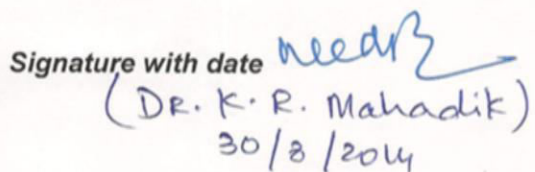 Signature with date
(DR. K. R. Mahadik)
30/8/2014